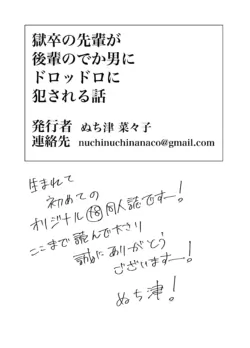 獄卒の先輩が
後輩のでか男に
ドロッドロに
犯される話
発行者 ぬち津 菜々子
連絡先 nuchinuchinanaco@gmail.com
生まれて
初めての
オリジナル⑱同人誌ですー!
ここまで読んで下さり
誠にありがとう
ございますー!
ぬち津!